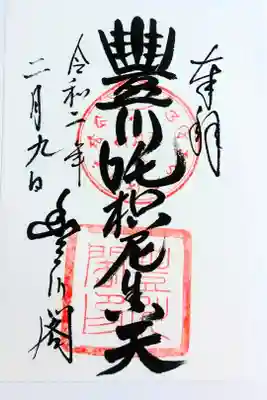 奉拝
豊川吒枳尼真天
令和二年
二月九日
豊川閣